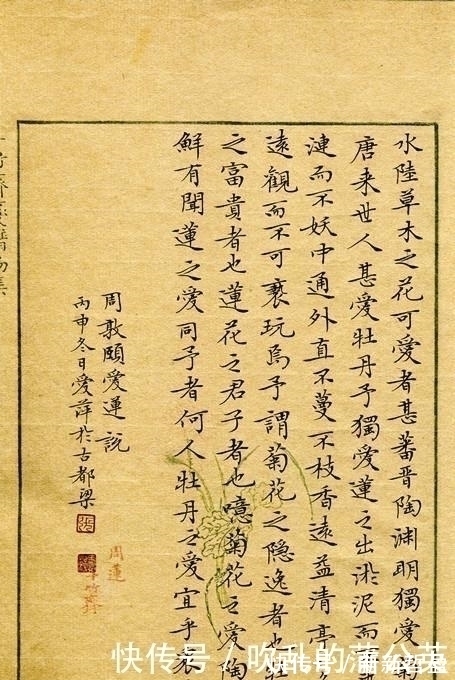 水陸草木之花可愛者甚蕃晉陶淵明獨愛菊
唐来世人甚愛牡丹予獨愛蓮之出淤泥而
漣而不妖中通外直不蔓不枝香遠益清亭
遠觀而不可褻玩焉予謂菊花之隱逸者也牡
之富貴者也蓮花之君子者也噫菊花之愛陶
鮮有聞蓮之愛同予者何人牡丹之愛宜乎衆
周敦頤愛蓮説
丙申冬日愛萍於古都梁
周蓮
快传号 / 吹乱的蒲公英